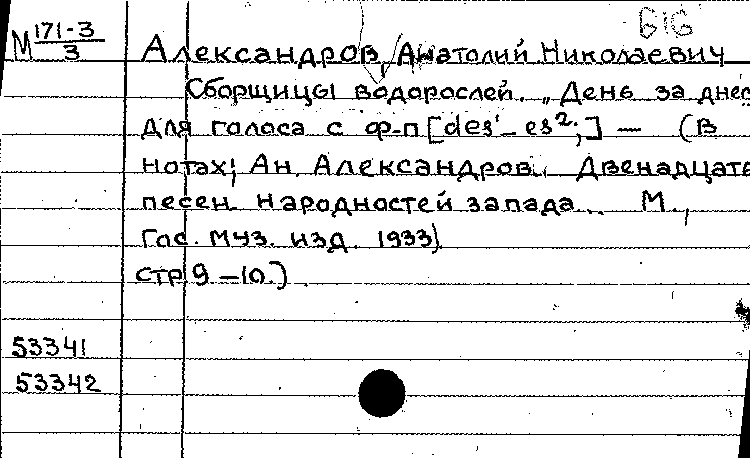 616
М 171-3/3 Александров, Анатолий Николаевич
Сборщицы водорослей. „День за днес
для голоса с ф-п [des'- es²;] — (В
нотах: Ан. Александров. Двенадцать
песен народностей запада. М.,
Гос. муз. изд. 1933)
стр 9-10.)
53341
53342